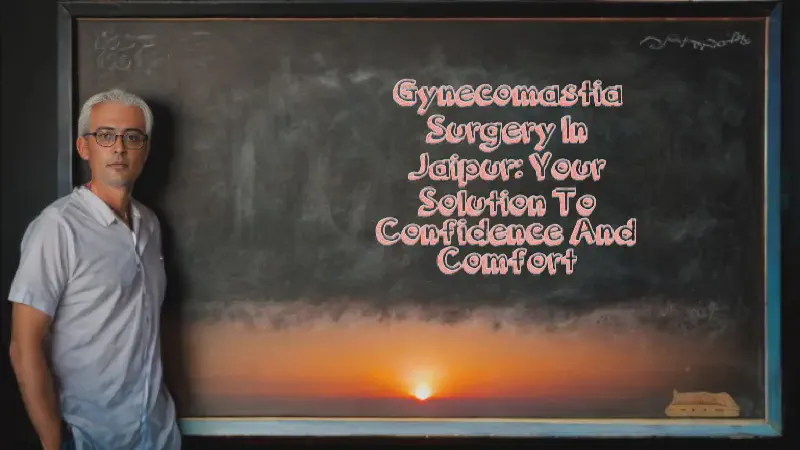 Gynecomastia
Surgery In
Jaipur: Your
Solution To
Confidence And
Comfort